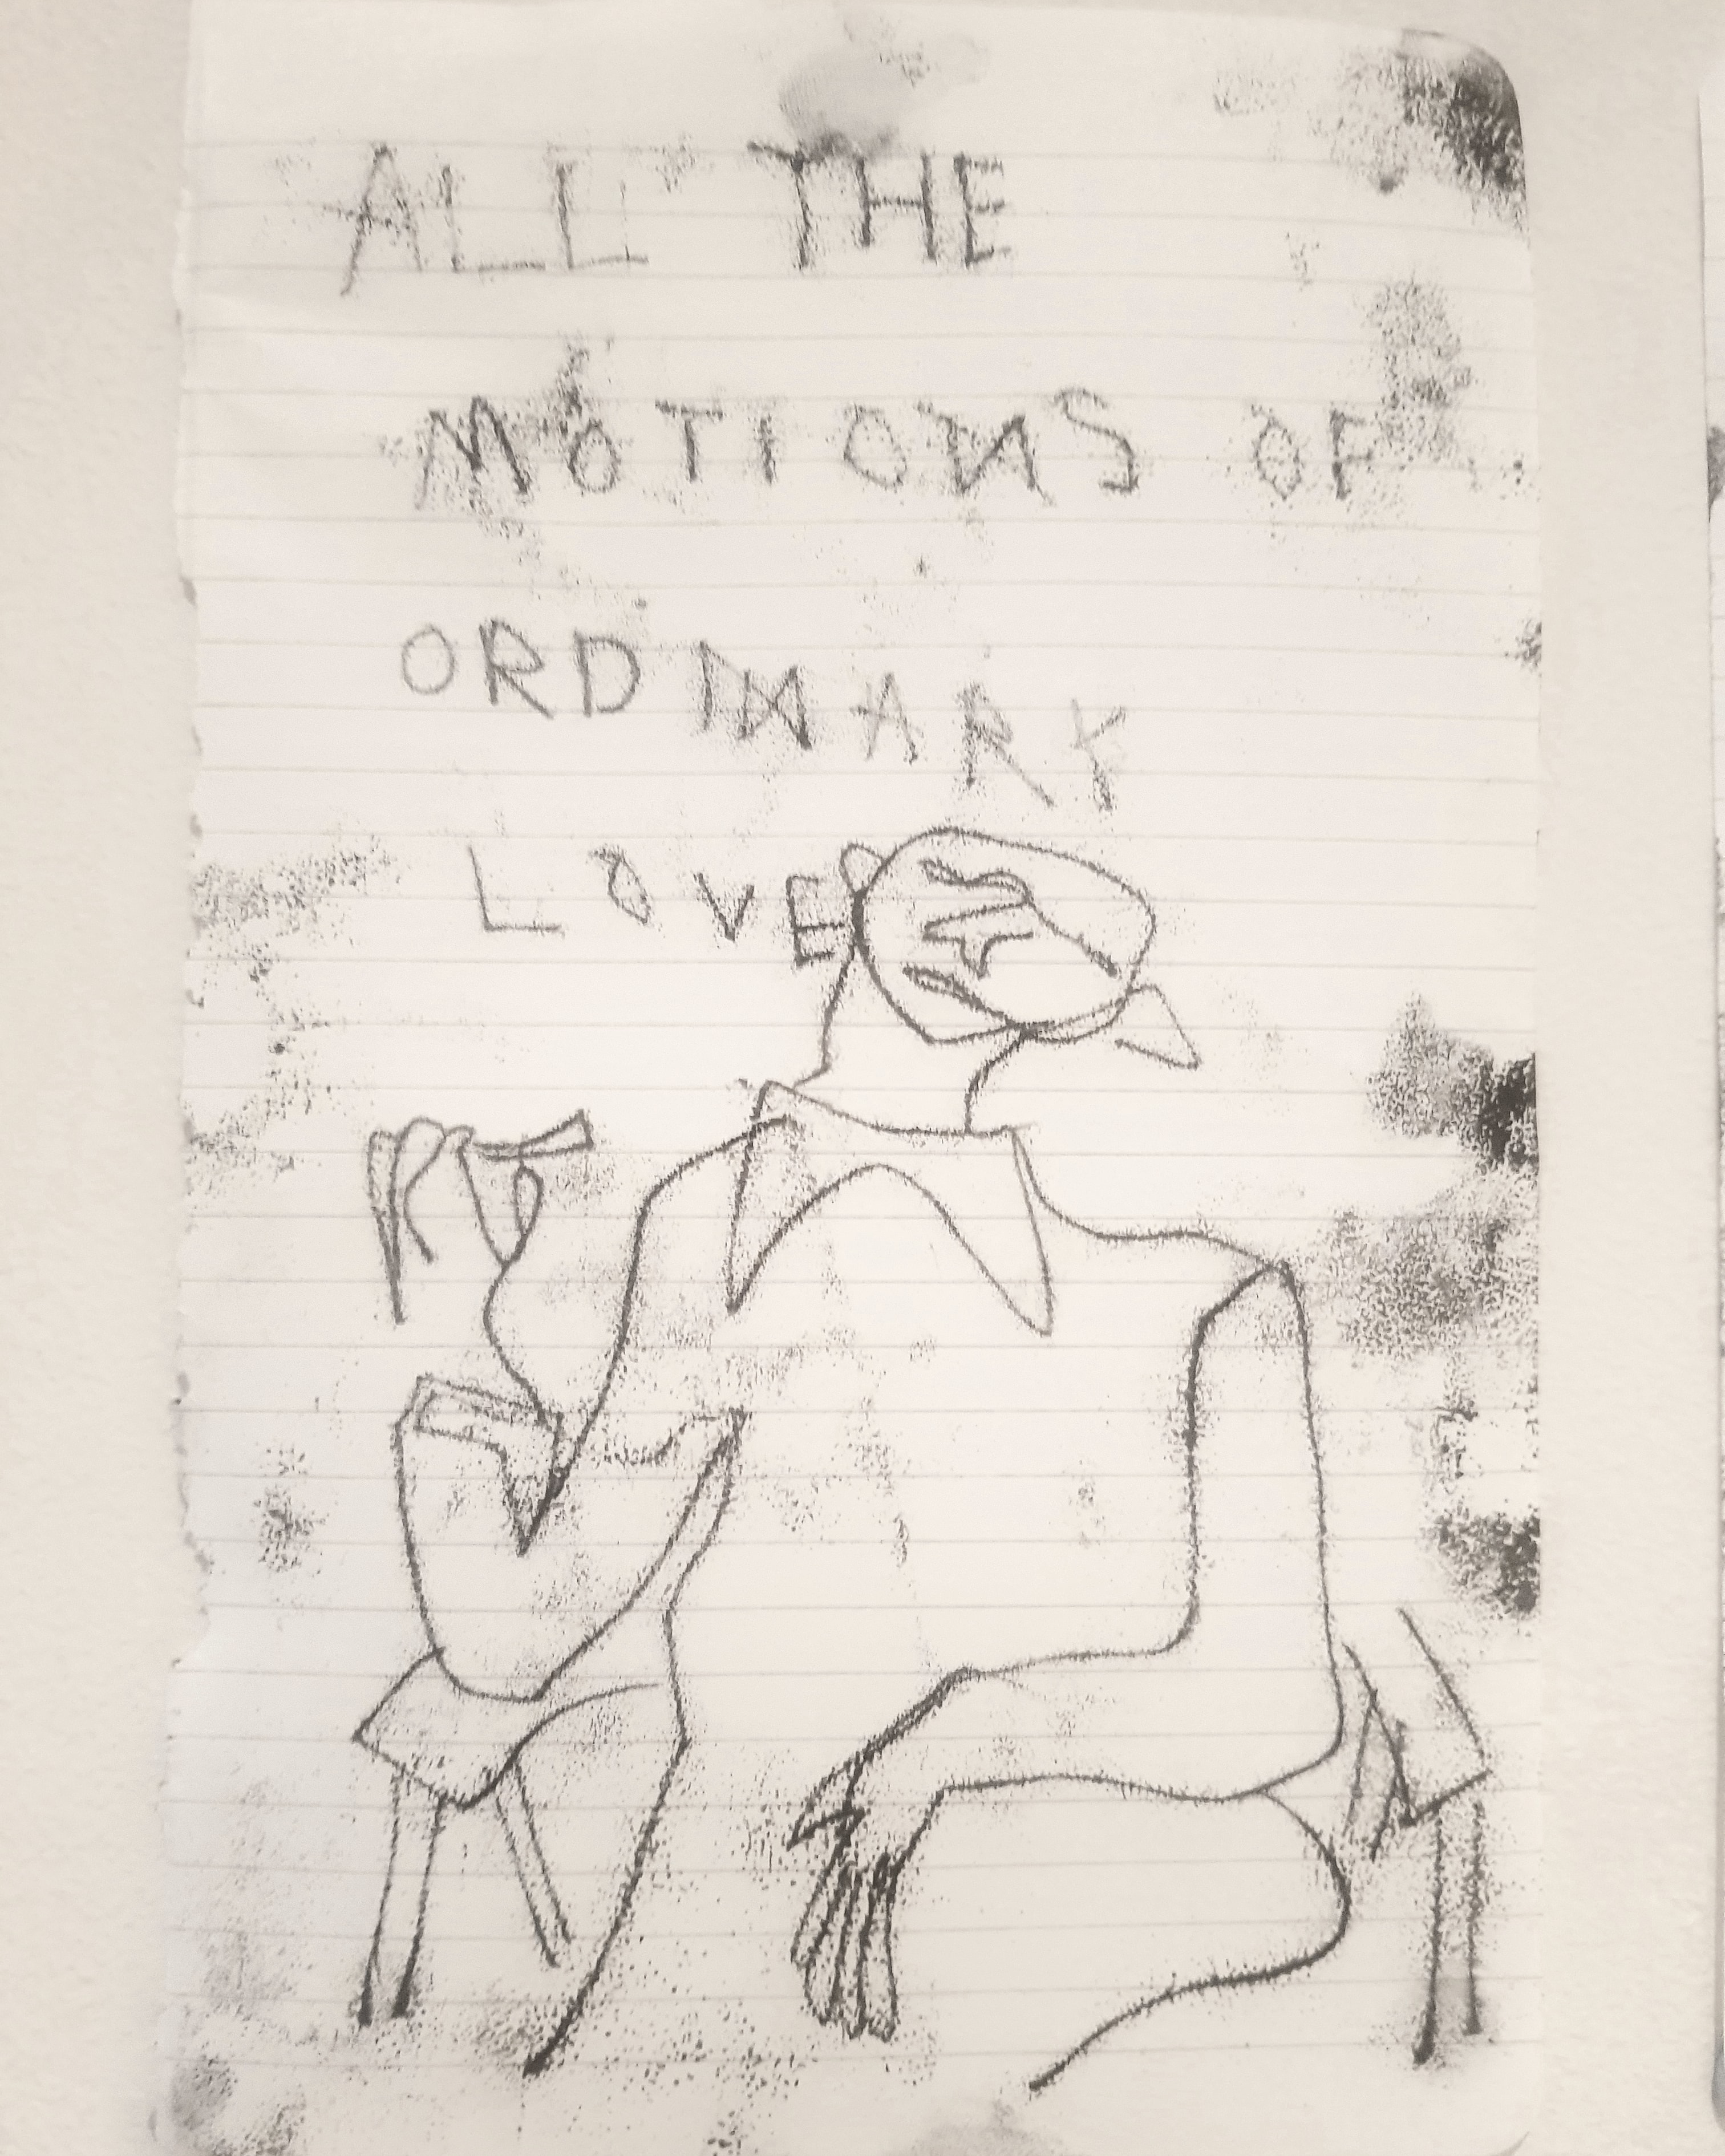 ALL THE
MOTIONS OF
ORDINARY
LOVE